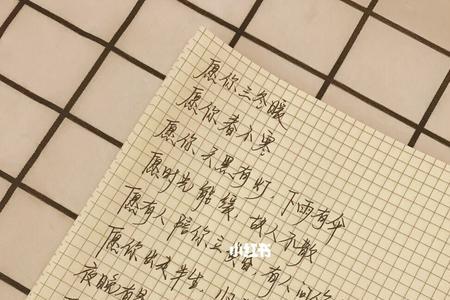 愿你三冬暖
愿你春不寒
愿你天黑有灯,下雨有伞
愿时光能缓,故人不散
愿有人陪你立黄昏,有人问你
愿你出走半生,归
夜晚有
小红书